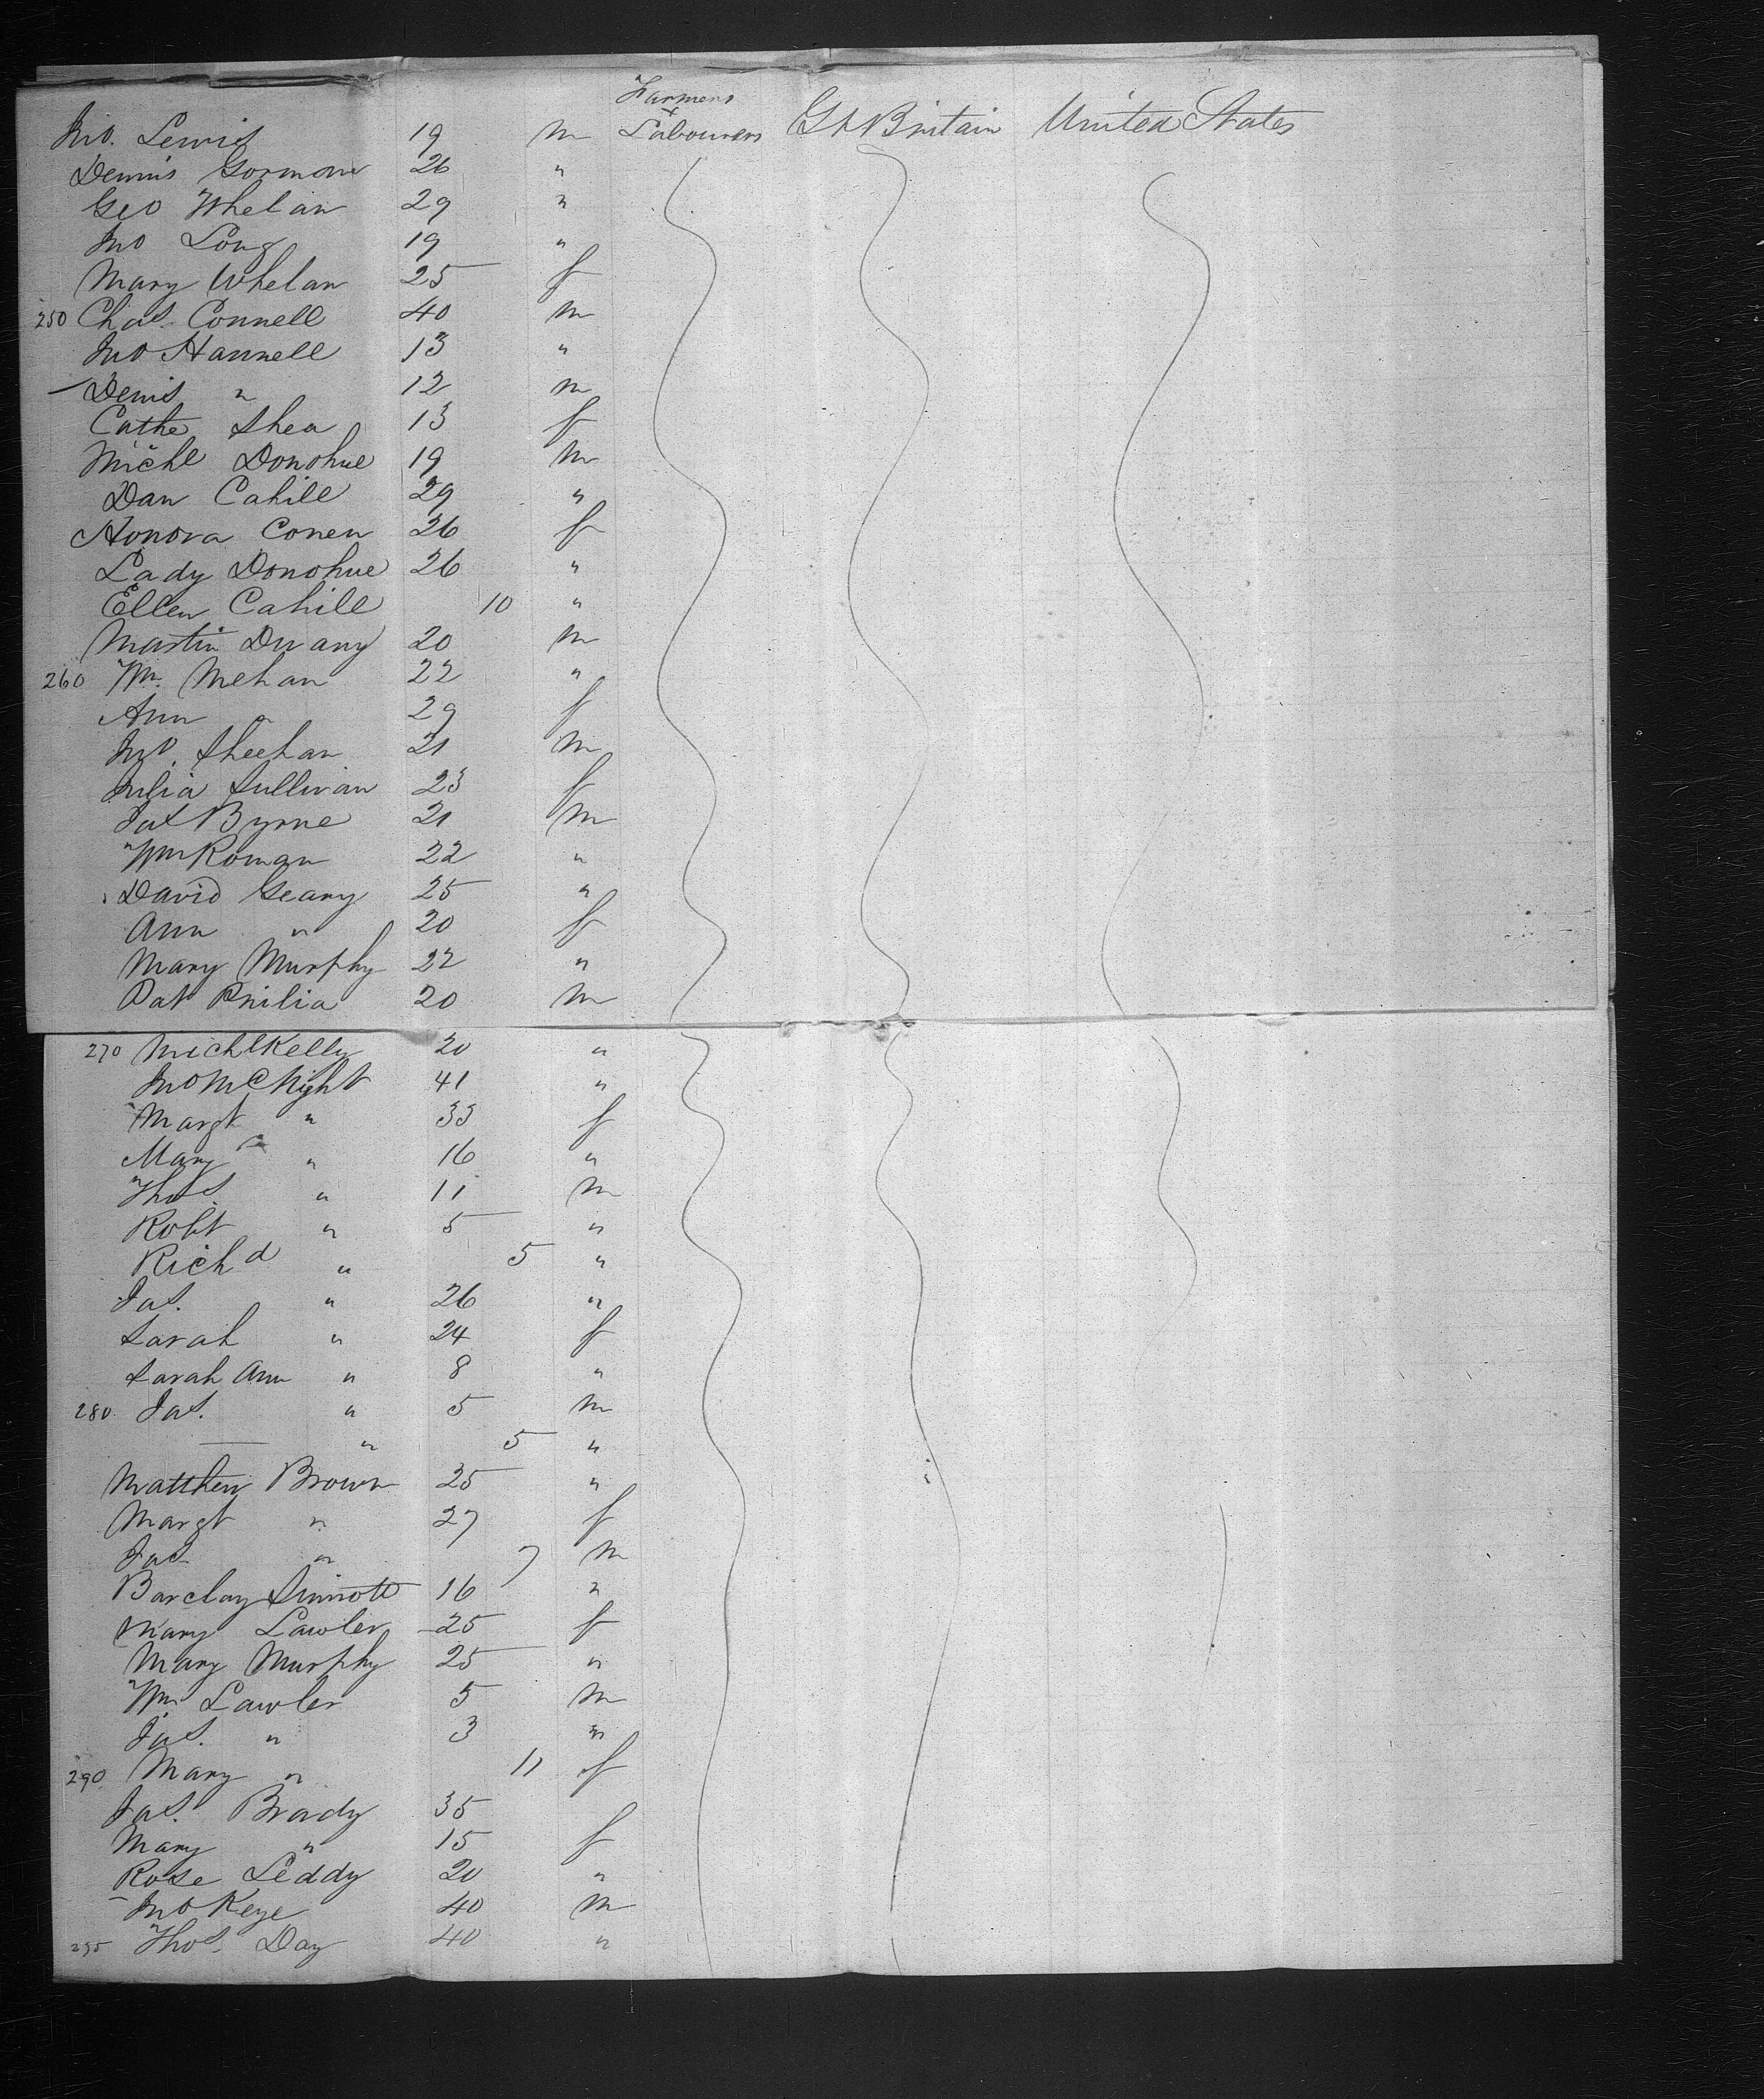 Farmers
&
Jno. Lewis 19 m Labourers Gt Britain United States
Dennis Gormon 26 "
Geo Whelan 29 "
Jno Long 19 "
Mary Whelan 25 f
250 Chas. Connell 40 m
Jno Hannell 13 "
Denis " 12 m
Cathe Shea 13 f
Michl Donohue 19 m
Dan Cahill 29 "
Honora Conen 26 f
Lady Donohue 26 "
Ellen Cahill 10 "
Martin Duany 20 m
260 Wm. Mehan 22 "
Ann " 29 f
Jno. Sheehan 21 m
Julia Sullivan 23 f
Jas Byrne 21 m
Wm Roman 22 "
David Geary 25 "
Ann " 20 f
Mary Murphy 22 "
Pat 20 m
270 Michl Kelly 20 "
Jno McNight 41 "
Margt " 33 f
Mary " 16 "
Thos. " 11 m
Robt " 5 "
Richd " 5 "
Jas. " 26 "
Sarah " 24 f
Sarah Ann " 8 "
280 Jas. " 5 m
— " 5 "
Matthew Brown 25 "
Margt " 27 f
Jas " 7 m
Barclay Sinnott 16 "
Mary Lawler 25 f
Mary Murphy 25 "
Wm Lawler 5 m
Jas. " 3 "
290 Mary " 11 f
Jas. Brady 35
Mary " 15 f
Rose Leddy 20 "
Jno Keye 40 m
295 Thos. Day 40 "